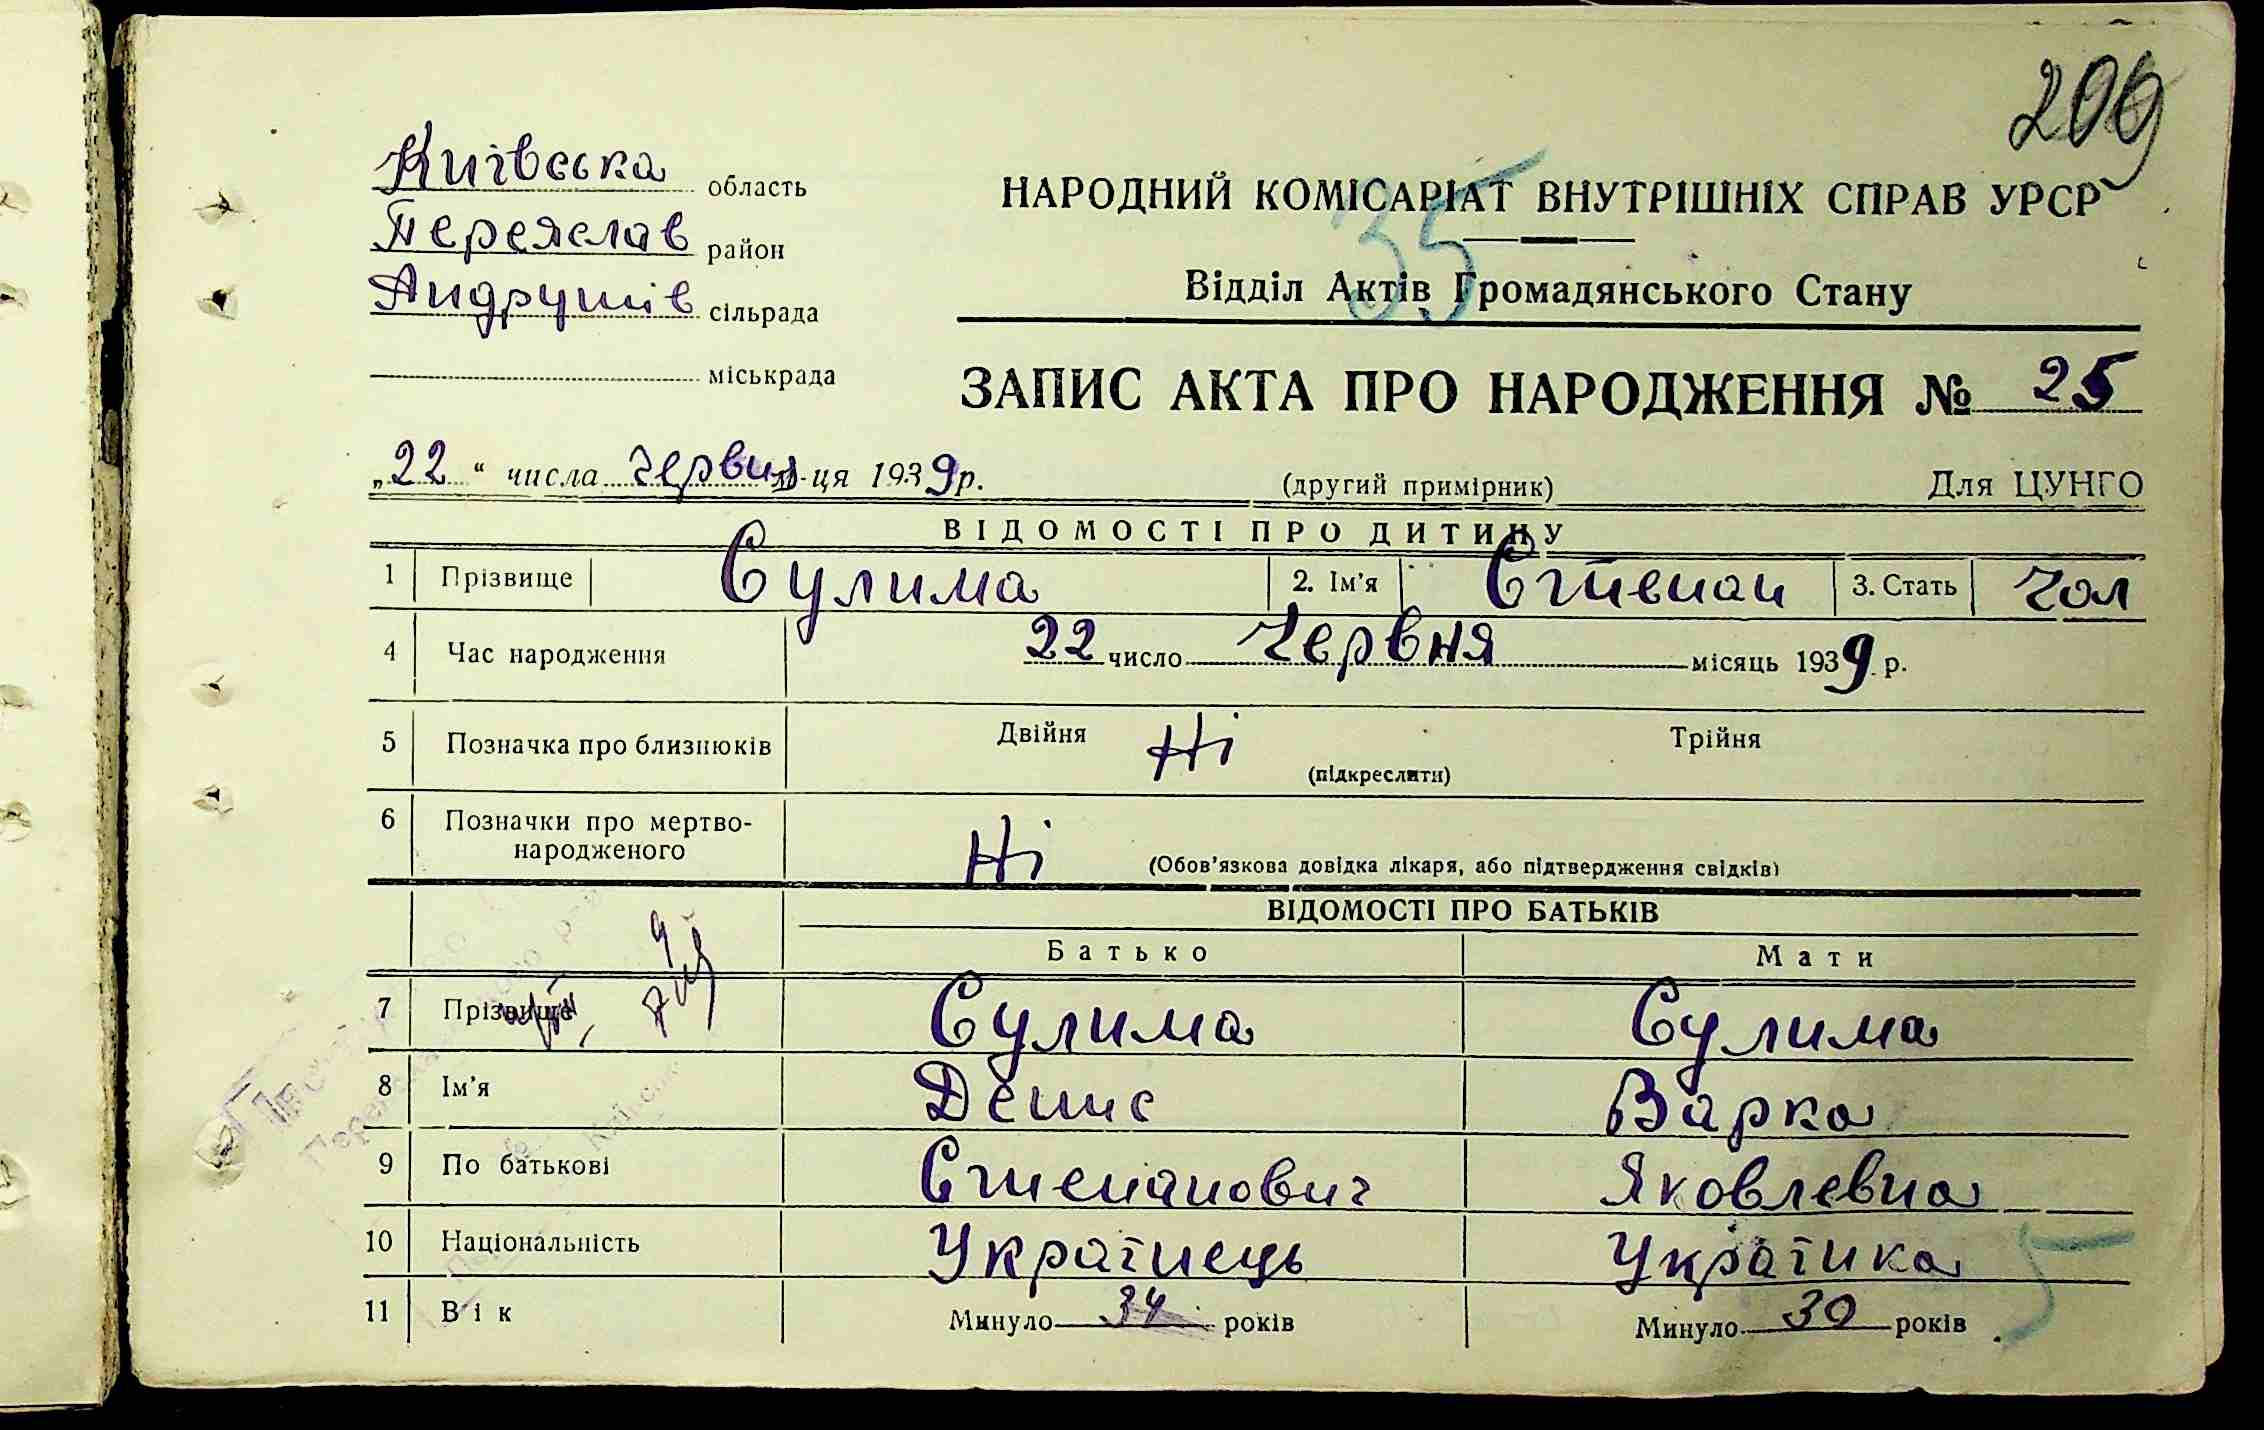 209
Київська область
Переяслав район
Андрушів сільрада
міськрада
НАРОДНИЙ КОМІСАРІАТ ВНУТРІШНІХ СПРАВ УРСР
35
Відділ Актів Громадянського Стану
ЗАПИС АКТА ПРО НАРОДЖЕННЯ № 25
„22“ числа червня м-ця 1939 р.
(другий примірник)
Для ЦУНГО
ВІДОМОСТІ ПРО ДИТИНУ
1 Прізвище Сулима 2. Ім'я Степан 3. Стать чол
4 Час народження 22 число червня місяць 1939 р.
5 Позначка про близнюків Двійня Ні (підкреслити) Трійня
6 Позначки про мертво-
народженого Ні (Обов'язкова довідка лікаря, або підтвердження свідків)
ВІДОМОСТІ ПРО БАТЬКІВ
Батько Мати
7 Прізвище Сулима Сулима
8 Ім'я Денис Варка
9 По батькові Степанович Яковлевна
10 Національність Українець Українка
11 Вік Минуло 34 років Минуло 30 років
5